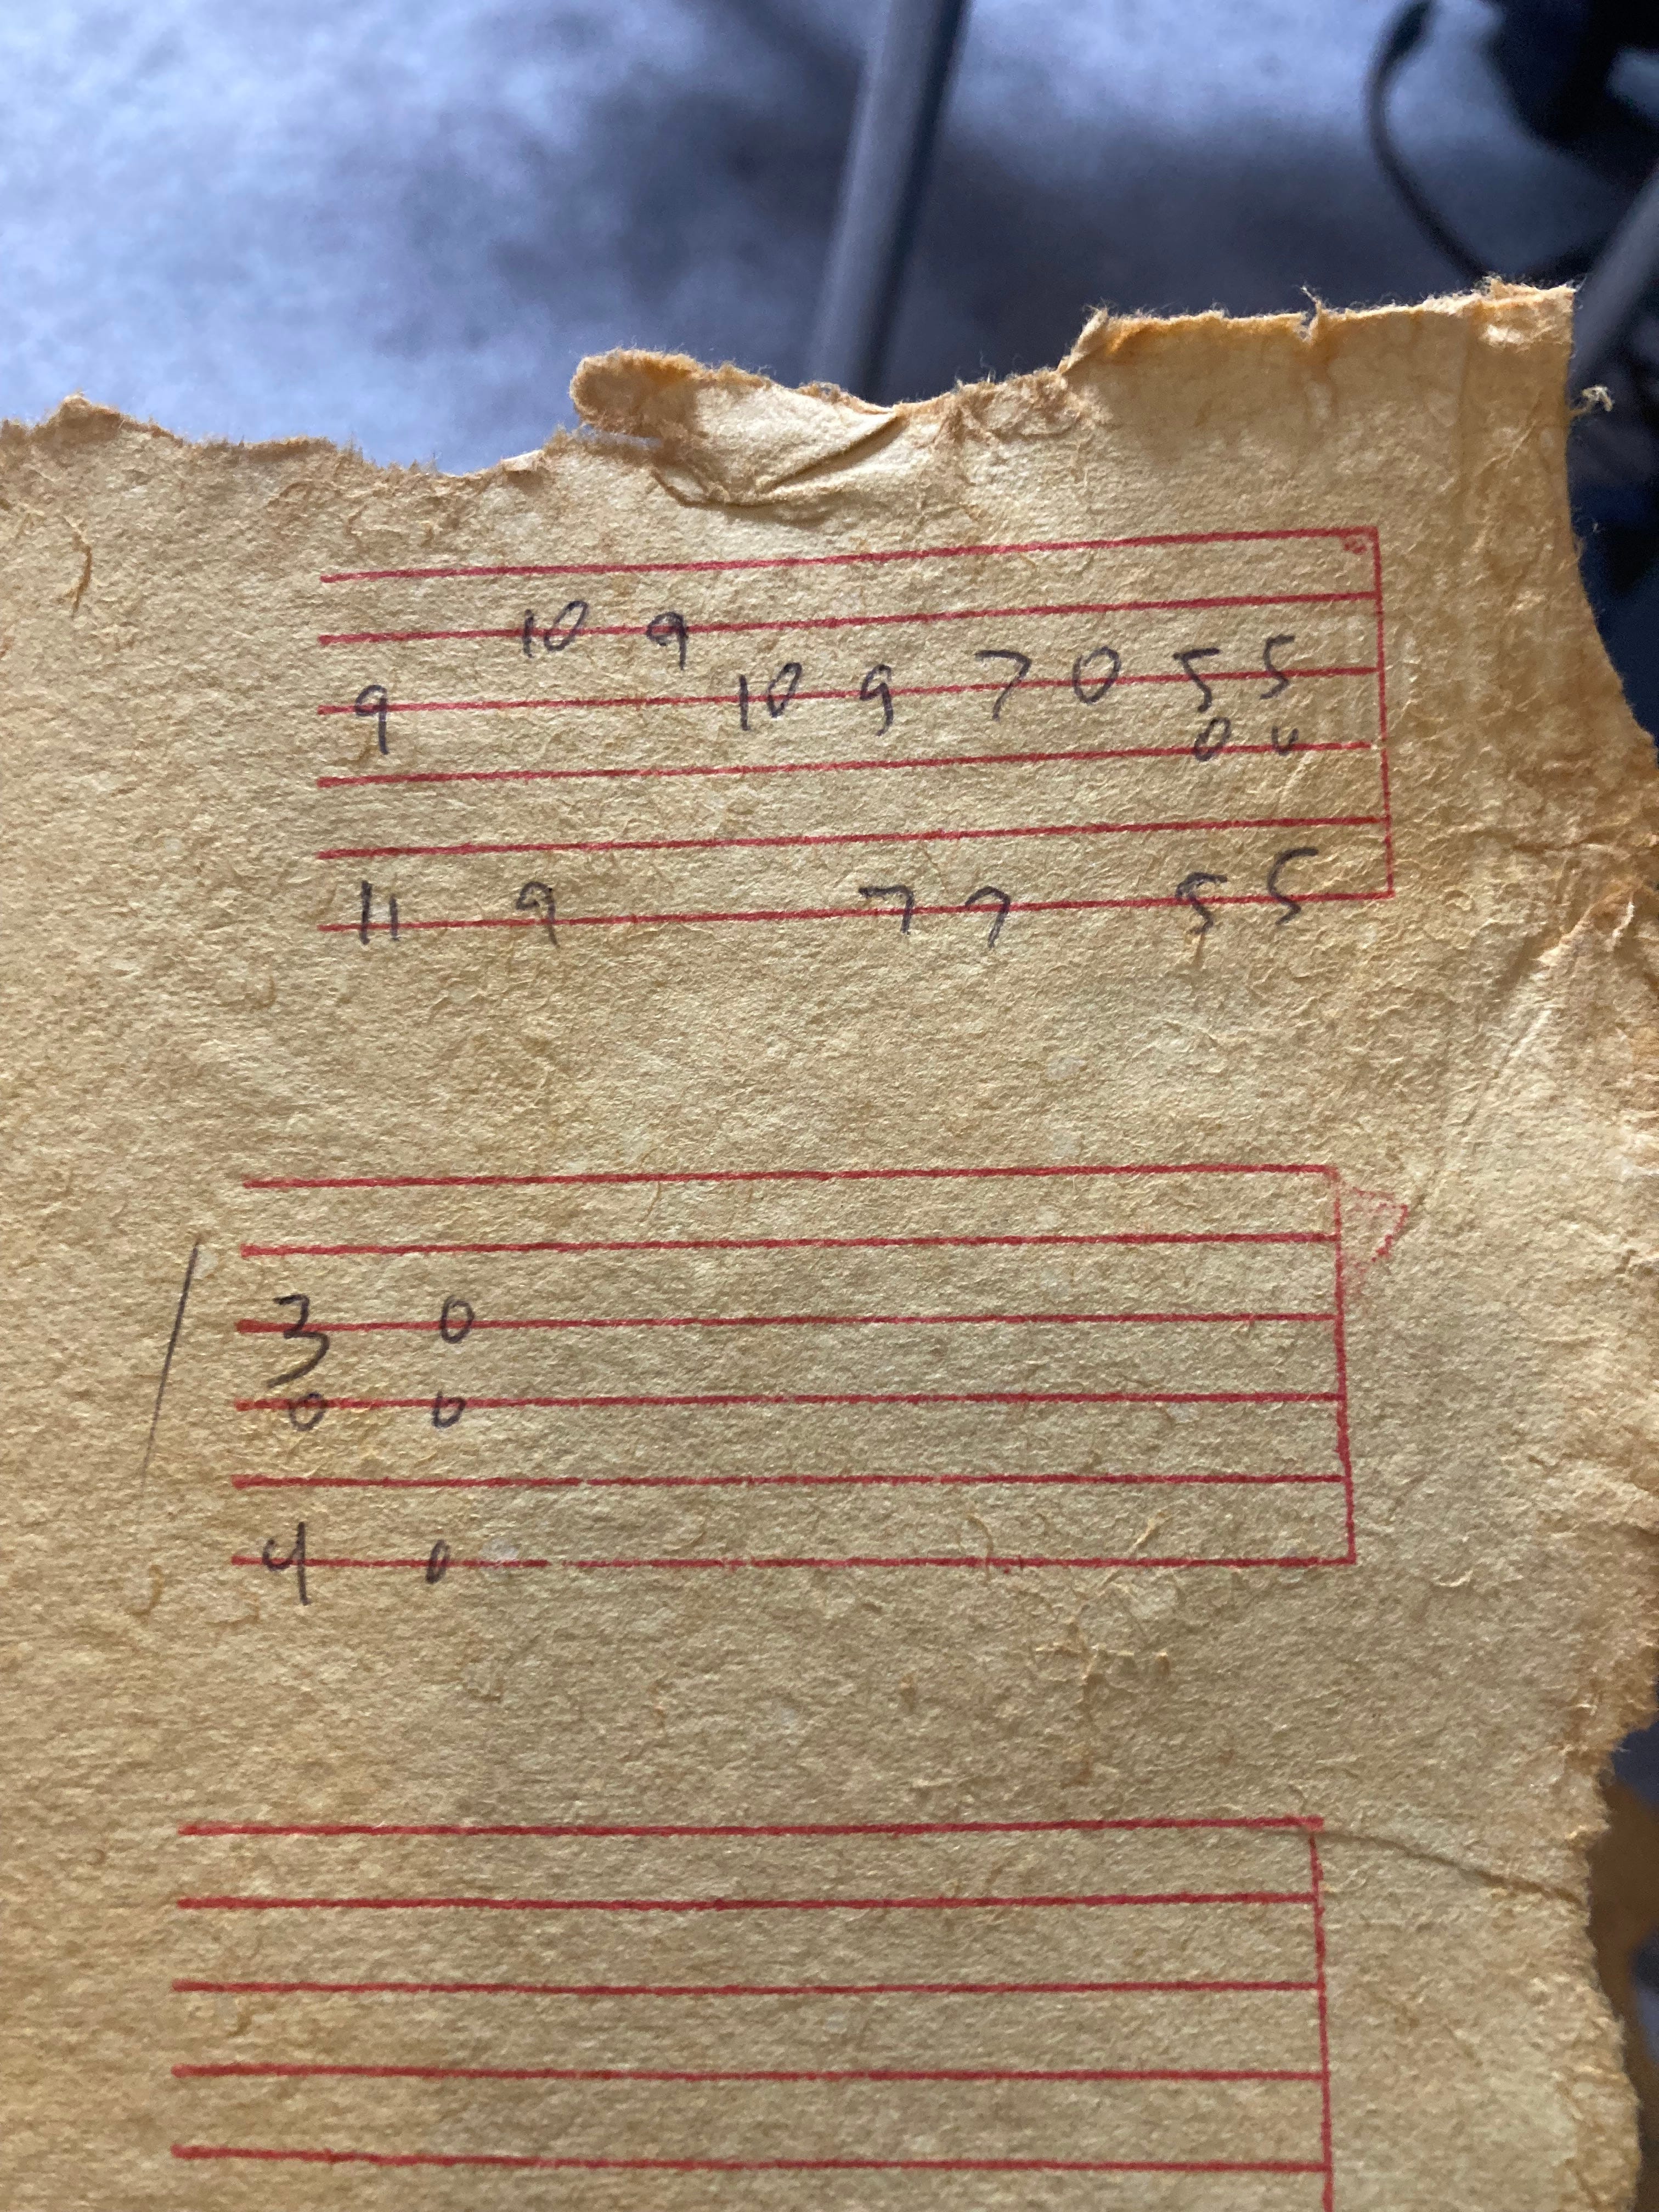 10 9
9 10 9 7 0 5 5
0 0
11 9 7 7 5 5
3 0
0 0
4 0